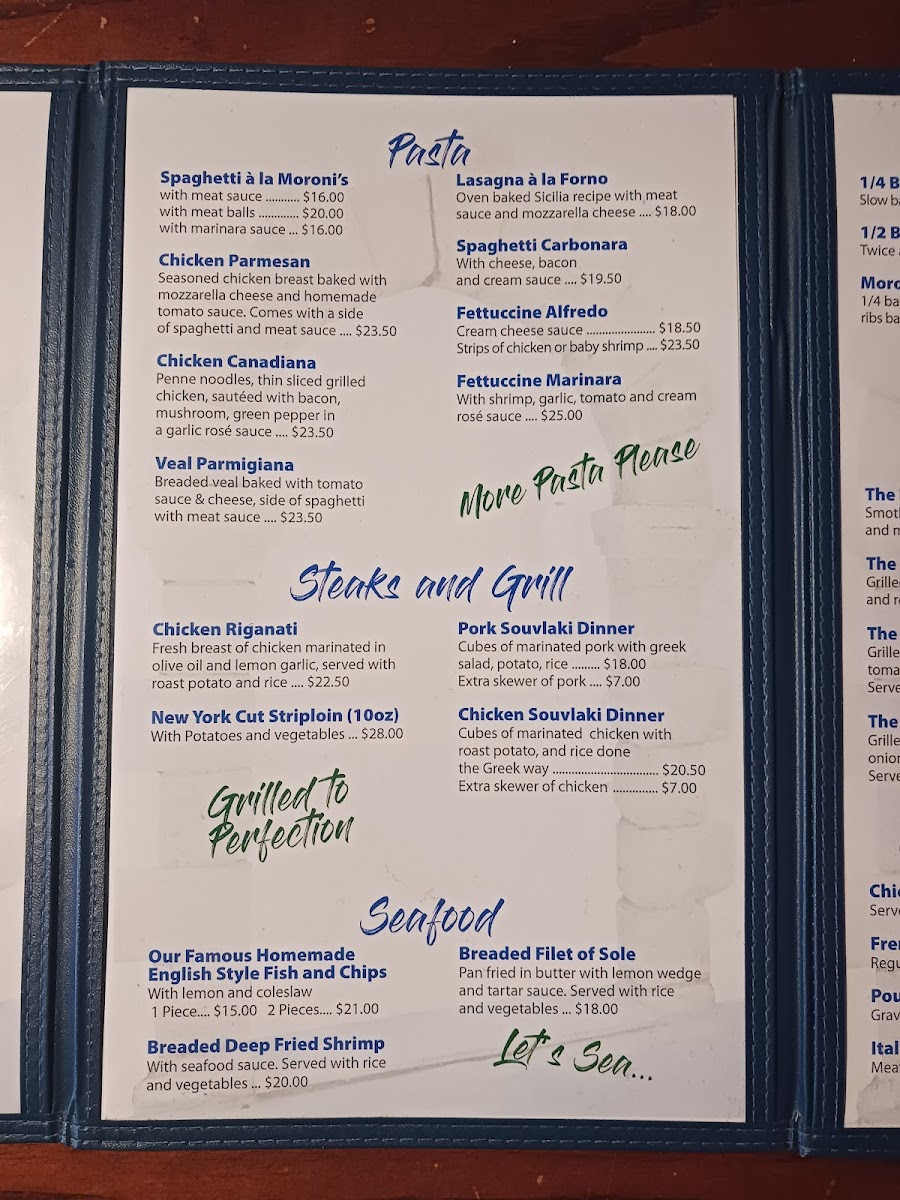 Pasta
Spaghetti à la Moroni's
with meat sauce ........... $16.00
with meat balls ............. $20.00
with marinara sauce ... $16.00
Chicken Parmesan
Seasoned chicken breast baked with
mozzarella cheese and homemade
tomato sauce. Comes with a side
of spaghetti and meat sauce .... $23.50
Chicken Canadiana
Penne noodles, thin sliced grilled
chicken, sautéed with bacon,
mushroom, green pepper in
a garlic rosé sauce .... $23.50
Veal Parmigiana
Breaded veal baked with tomato
sauce & cheese, side of spaghetti
with meat sauce .... $23.50
Lasagna à la Forno
Oven baked Sicilia recipe with meat
sauce and mozzarella cheese .... $18.00
Spaghetti Carbonara
With cheese, bacon
and cream sauce .... $19.50
Fettuccine Alfredo
Cream cheese sauce ...................... $18.50
Strips of chicken or baby shrimp .... $23.50
Fettuccine Marinara
With shrimp, garlic, tomato and cream
rosé sauce .... $25.00
More Pasta Please
Steaks and Grill
Chicken Riganati
Fresh breast of chicken marinated in
olive oil and lemon garlic, served with
roast potato and rice .... $22.50
New York Cut Striploin (10oz)
With Potatoes and vegetables ... $28.00
Grilled to
Perfection
Pork Souvlaki Dinner
Cubes of marinated pork with greek
salad, potato, rice ......... $18.00
Extra skewer of pork .... $7.00
Chicken Souvlaki Dinner
Cubes of marinated chicken with
roast potato, and rice done
the Greek way .................................. $20.50
Extra skewer of chicken .............. $7.00
Seafood
Our Famous Homemade
English Style Fish and Chips
With lemon and coleslaw
1 Piece.... $15.00 2 Pieces.... $21.00
Breaded Deep Fried Shrimp
With seafood sauce. Served with rice
and vegetables ... $20.00
Breaded Filet of Sole
Pan fried in butter with lemon wedge
and tartar sauce. Served with rice
and vegetables ... $18.00
Let's Sea...
1/4 B
Slow ba
1/2 B
Twice
Moro
1/4 ba
ribs ba
The
Smoth
and m
The
Grille
and r
The
Grille
toma
Serve
The
Grille
onior
Serve
Chic
Serv
Fre
Regu
Pou
Grav
Ital
Mea